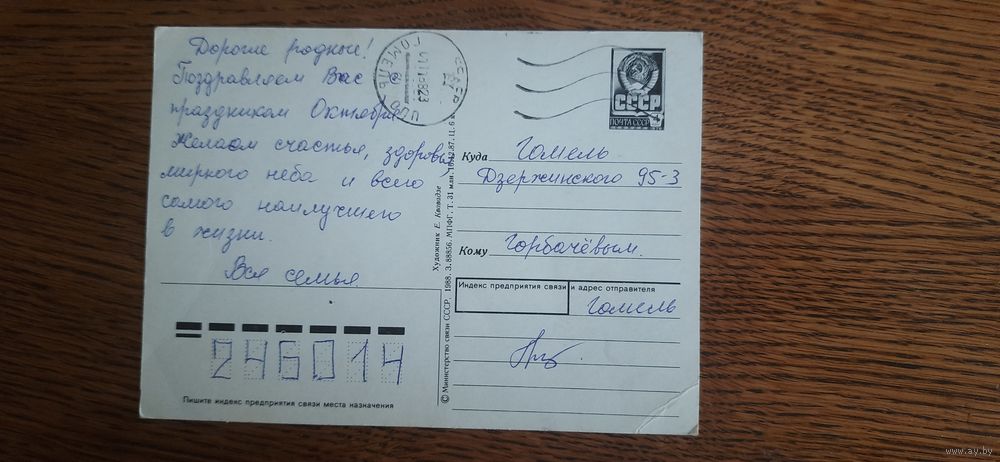 Дорогие родные!
Поздравляем Вас с
праздником Октября
Желаем счастья, здоровья,
мирного неба и всего
самого наилучшего
в жизни.
Вся семья
246014
Пишите индекс предприятия связи места назначения
© Министерство связи СССР, 1988. З. 88856. МПФГ, Т. 31 млн.
Художник Е. Квавадзе
СССР
ГОМЕЛЬ
СССР
ПОЧТА СССР
Куда Гомель
Дзержинского 95-3
Кому Горбачёвым.
Индекс предприятия связи и адрес отправителя
Гомель
www.ay.by